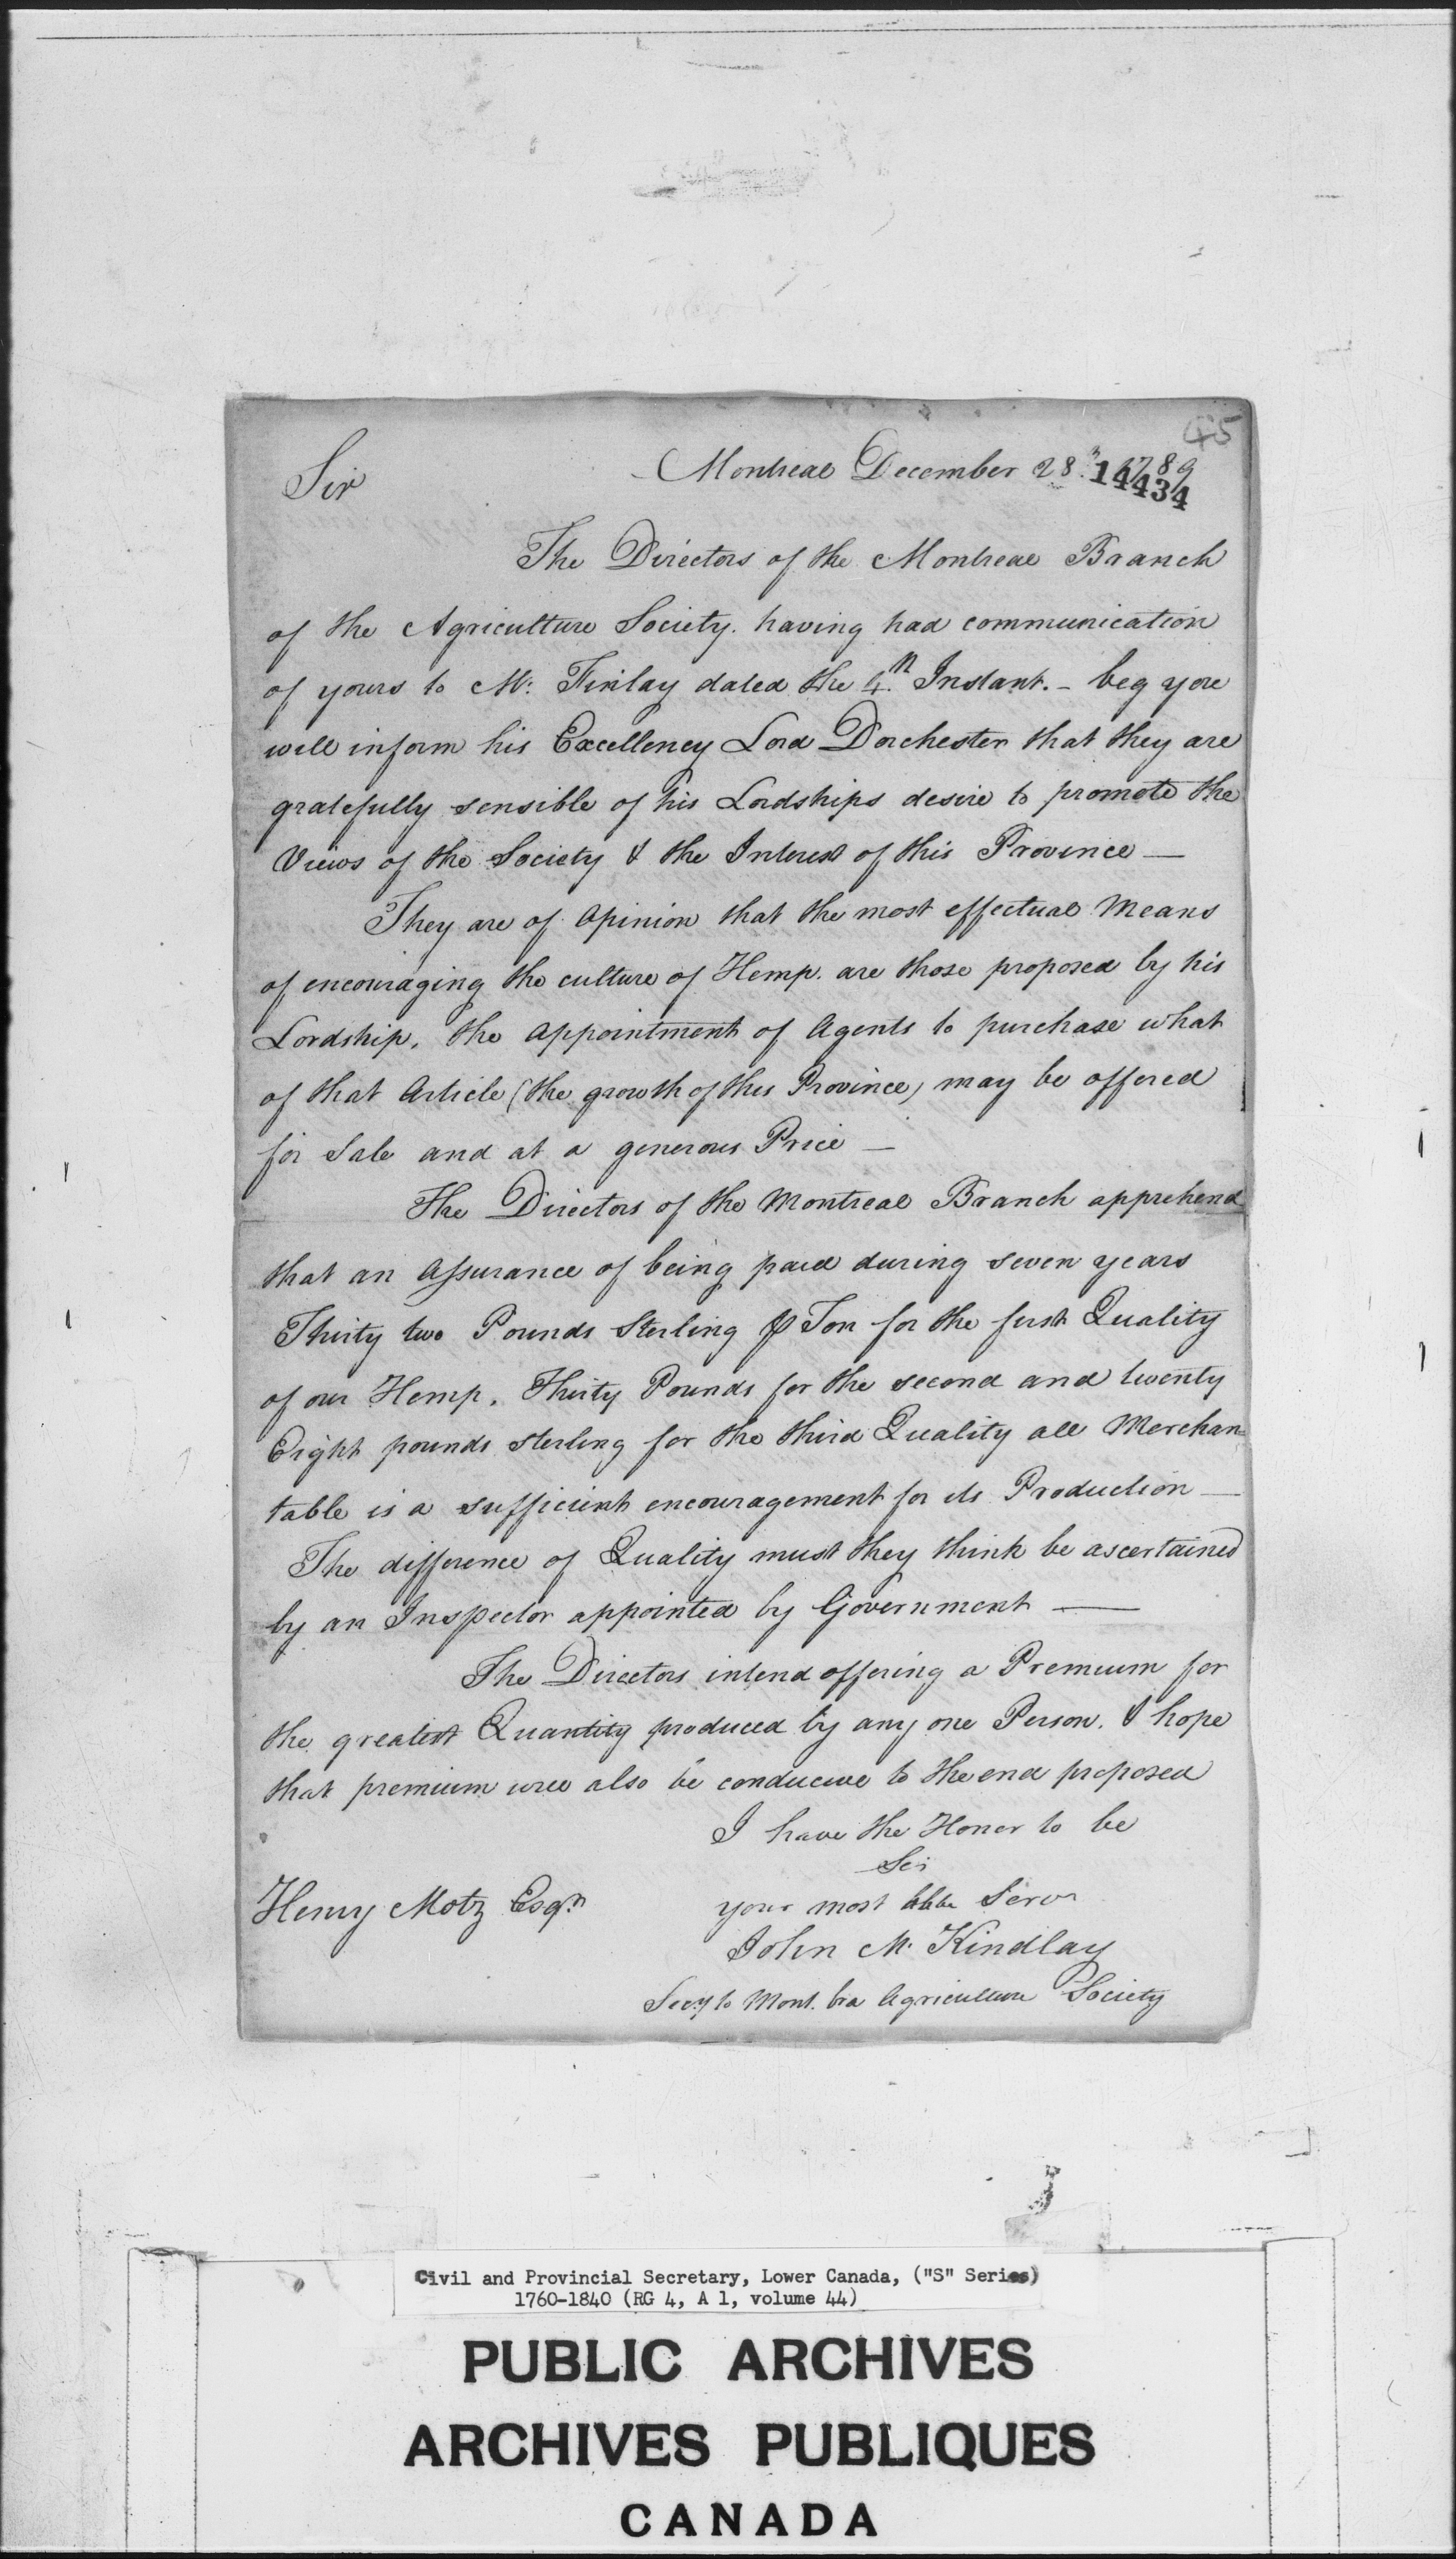 45
Sir
Montreal December 28. 1789
14434
The Directors of the Montreal Branch
of the Agriculture Society. having had communication
of yours to Mr: Finlay dated the 4.th Instant. - beg you
will inform his Excellency Lord Dorchester that they are
gratefully sensible of his Lordships desire to promote the
Views of the Society & the Interest of this Province —
They are of Opinion that the most effectual Means
of encouraging the culture of Hemp. are those proposed by his
Lordship, the Appointment of Agents to purchase what
of that Article (the growth of this Province) may be offered
for Sale and at a generous Price —
The Directors of the Montreal Branch apprehend
that an Assurance of being paid during seven years
Thirty two Pounds Sterling ⅌ Ton for the first Quality
of our Hemp, Thirty Pounds for the second and twenty
Eight pounds sterling for the third Quality all Merchan=
table is a sufficient encouragement for its Production —
The difference of Quality must they think be ascertained
by an Inspector appointed by Government —
The Directors intend offering a Premium for
the greatest Quantity produced by any one Person. & hope
that premium will also be conducive to the end proposed
I have the Honor to be
Sir
your most Servt
Henry Motz Esqr.
John Mc Kindlay
Secy to Mont. bra Agriculture Society
Civil and Provincial Secretary, Lower Canada, ("S" Series)
1760-1840 (RG 4, A 1, volume 44)
PUBLIC ARCHIVES
ARCHIVES PUBLIQUES
CANADA